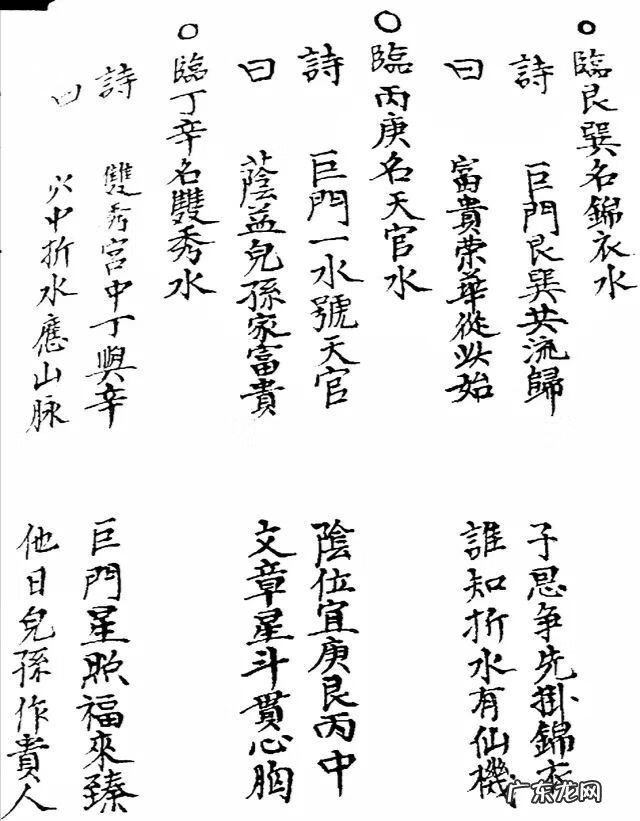 ○臨艮巽名錦衣水
詩　巨門艮巽共流歸　子思爭先掛錦衣
曰　富貴荣華從此始　誰知折水有仙機
○臨丙庚名天官水
詩　巨門一水號天官　陰位宜庚艮丙中
曰　蔭益兒孫家富貴　文章星斗貫心胸
○臨丁辛名雙秀水
詩　雙秀宮中丁與辛　巨門星照福來臻
曰　穴中折水應山脉　他日兒孫作貴人
广东龙网